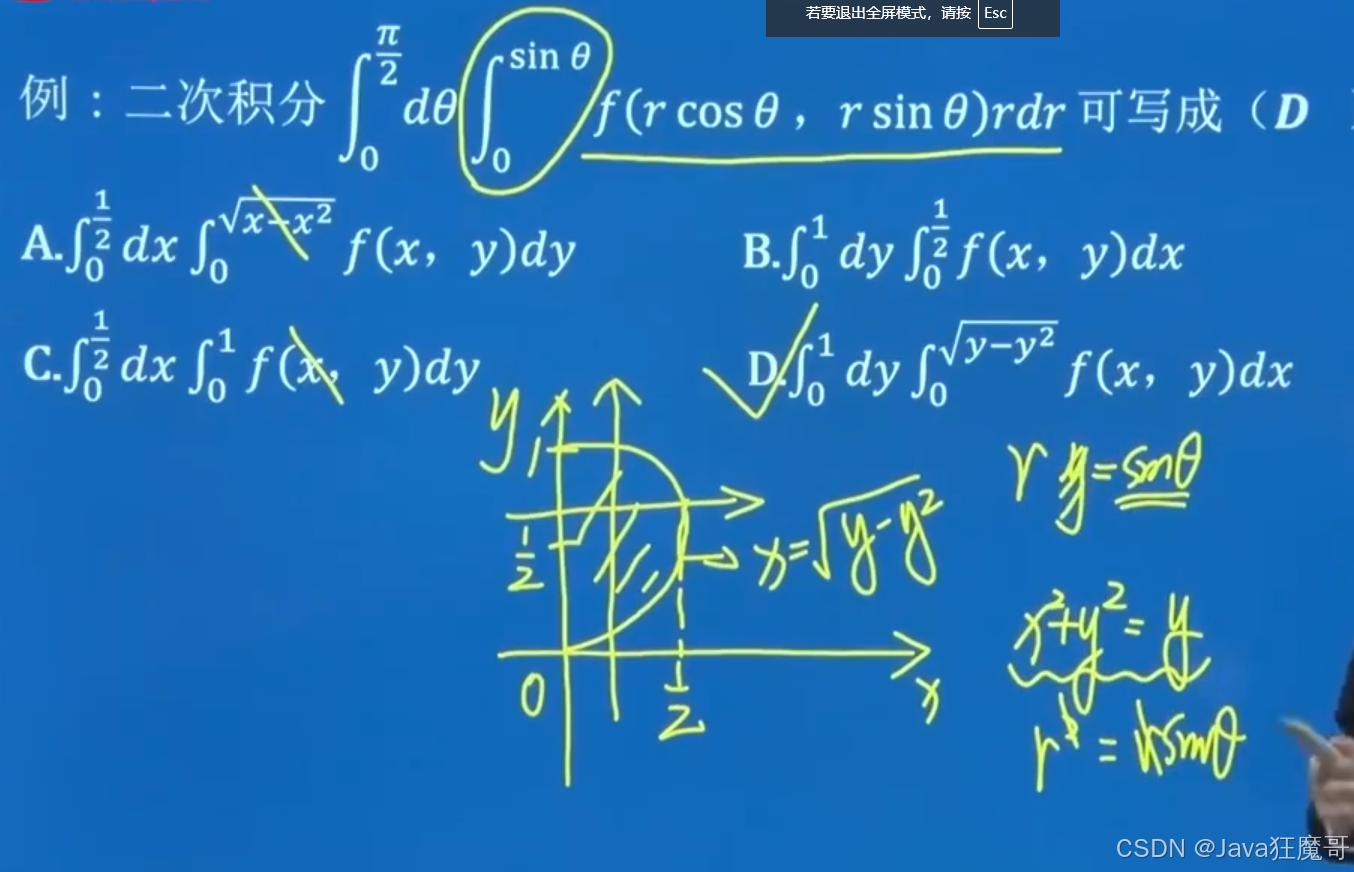 若要退出全屏模式，请按 Esc
例：二次积分 ∫₀^{π/2} dθ ∫₀^{sin θ} f(r cos θ， r sin θ)rdr 可写成（D
A.∫₀^{1/2} dx ∫₀^{√(x−x²)} f(x，y)dy
B.∫₀^{1} dy ∫₀^{1/2} f(x，y)dx
C.∫₀^{1/2} dx ∫₀^{1} f(x，y)dy
D.∫₀^{1} dy ∫₀^{√(y−y²)} f(x，y)dx
y
1
1/2
x=√(y-y²)
0
1/2
x
r = sinθ
x²+y²=y
r = sinθ
CSDN @Java狂魔哥